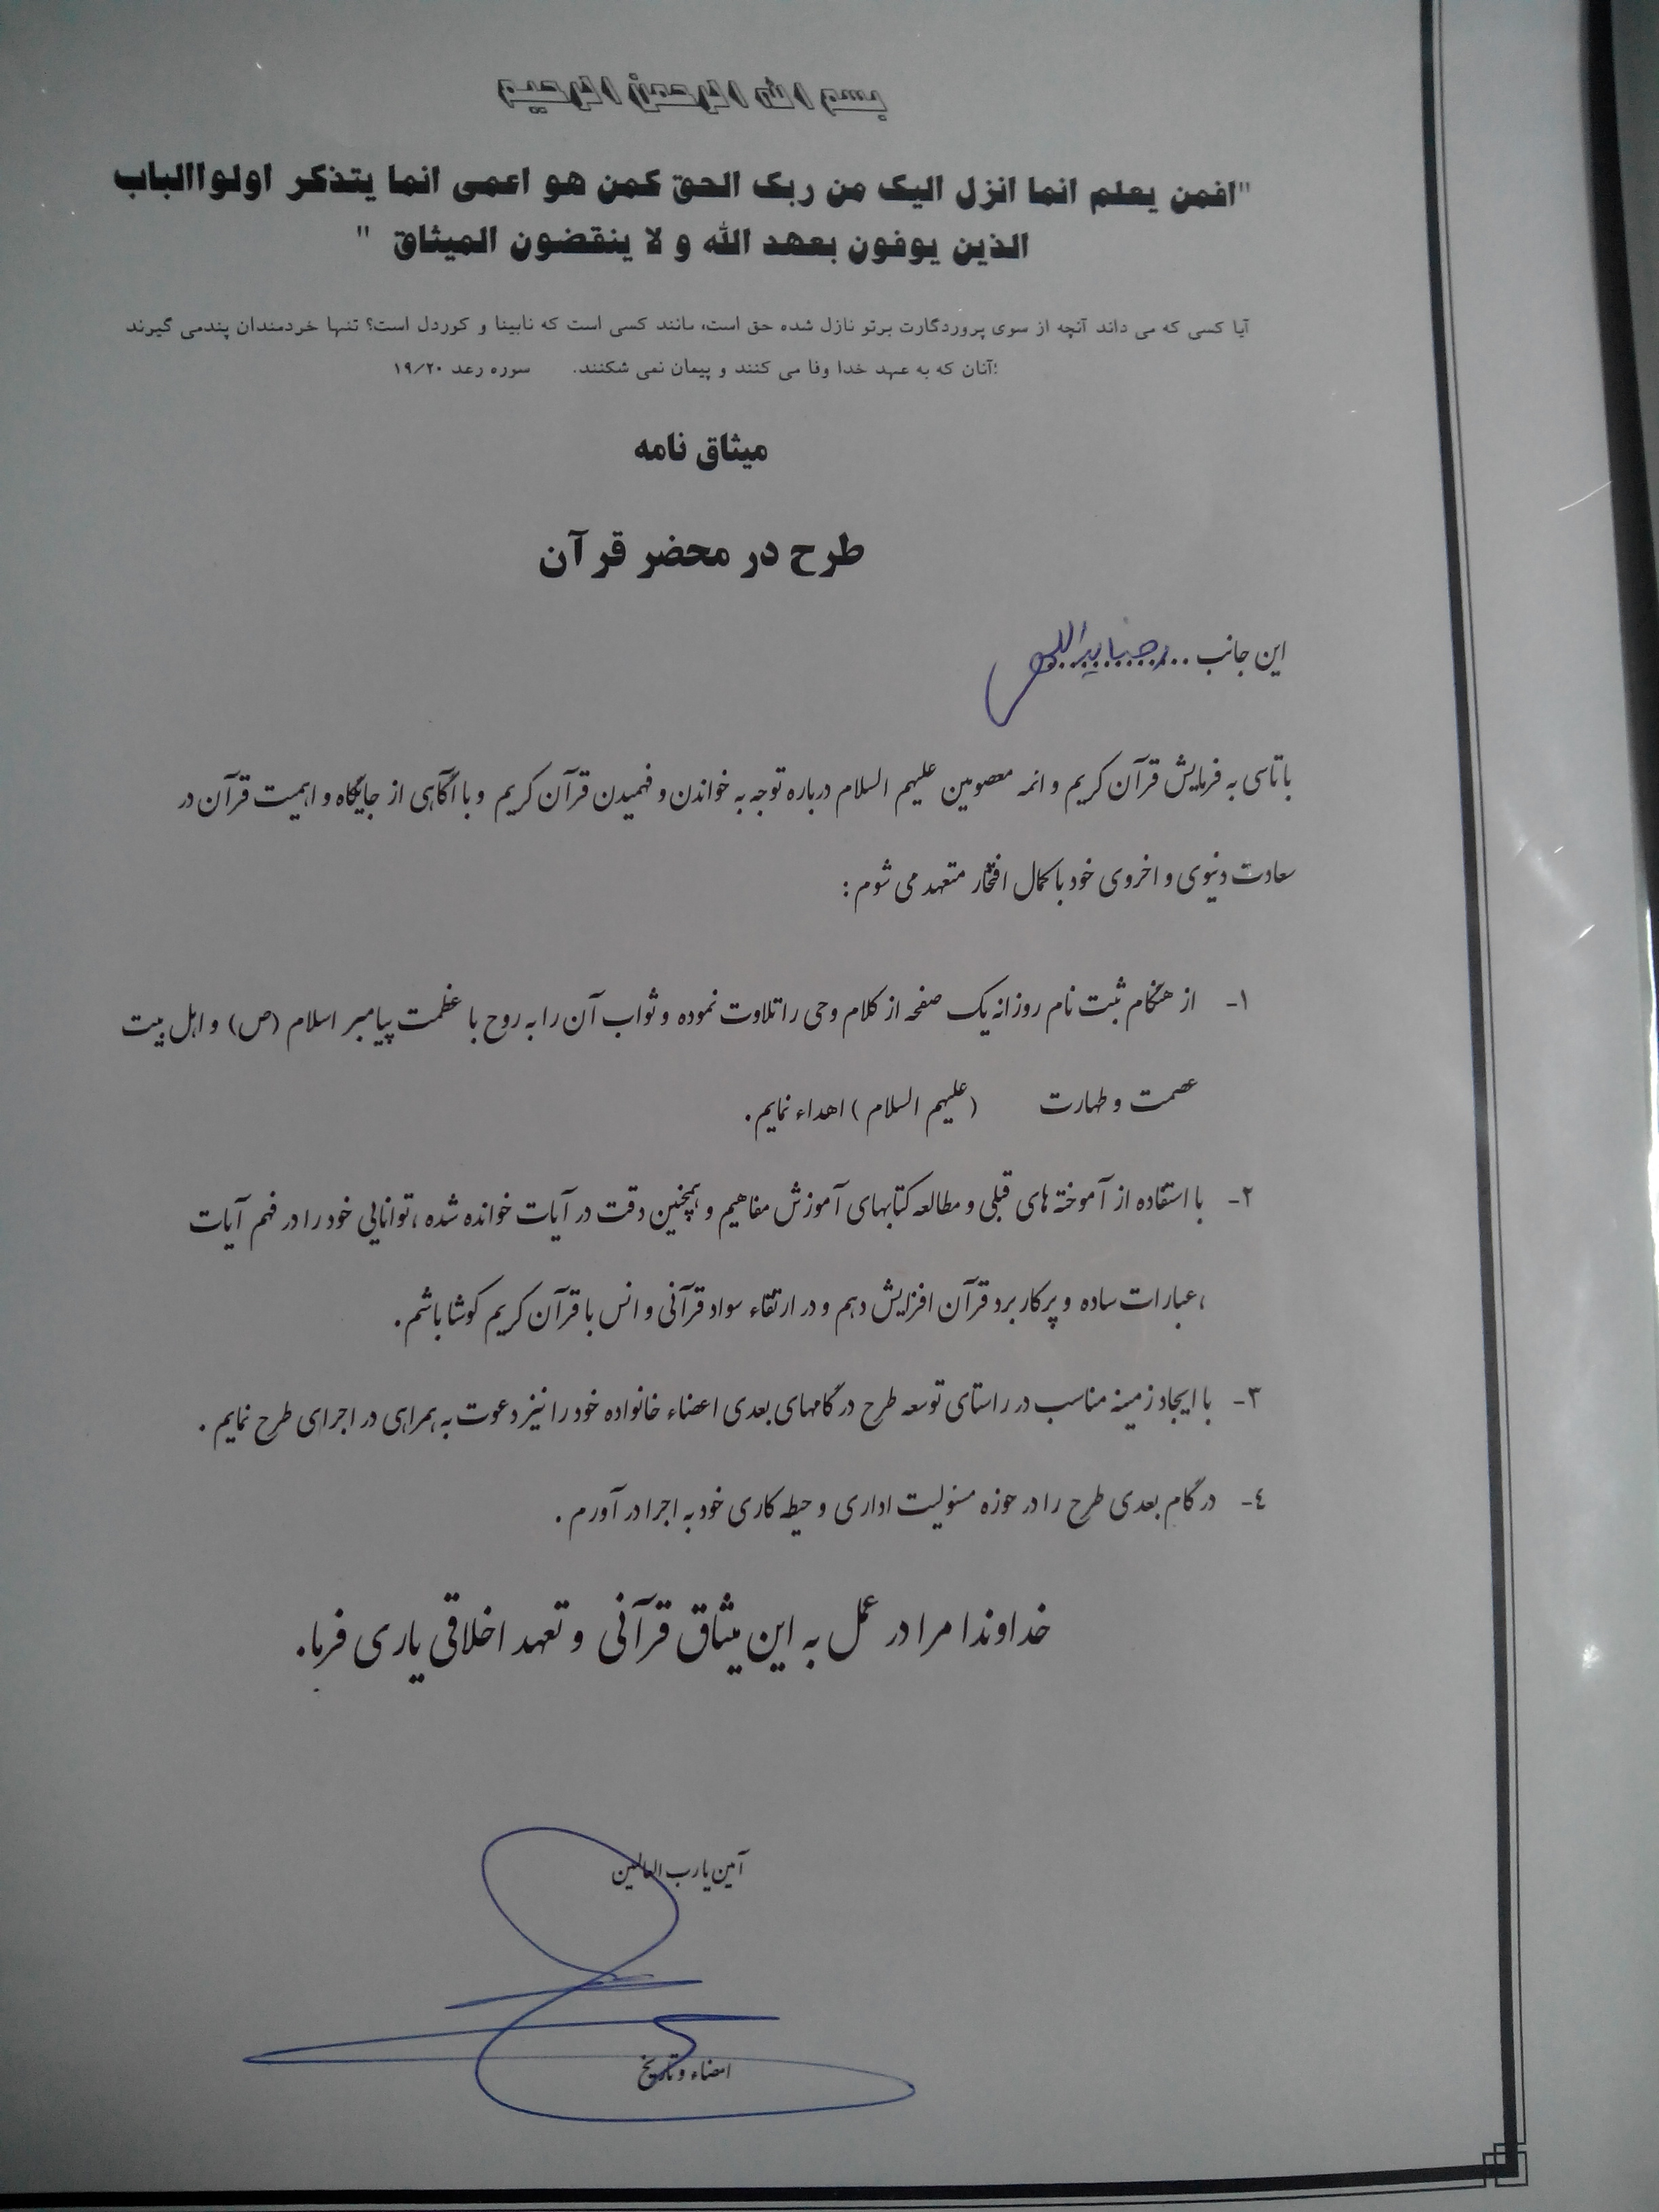 بسم الله الرحمن الرحیم
"افمن یعلم انما انزل الیک من ربک الحق کمن هو اعمی انما یتذکر اولواالباب
الذین یوفون بعهد الله و لا ینقضون المیثاق "
آیا کسی که می داند آنچه از سوی پروردگارت برتو نازل شده حق است، مانند کسی است که نابینا و کوردل است؟ تنها خردمندان پندمی گیرند
؛آنان که به عهد خدا وفا می کنند و پیمان نمی شکنند. سوره رعد ۱۹/۲۰
میثاق نامه
طرح در محضر قرآن
این جانب
با تاسی به فرمایش قرآن کریم و ائمه معصومین علیهم السلام درباره توجه به خواندن و فهمیدن قرآن کریم و با آگاهی از جایگاه و اهمیت قرآن در
سعادت دنیوی و اخروی خود با کمال افتخار متعهد می شوم :
۱- از هنگام ثبت نام روزانه یک صفحه از کلام وحی را تلاوت نموده و ثواب آن را به روح با عظمت پیامبر اسلام (ص) و اهل بیت
عصمت و طهارت (علیهم السلام ) اهداء نمایم.
۲- با استفاده از آموخته های قبلی و مطالعه کتابهای آموزش مفاهیم و همچنین دقت در آیات خوانده شده ،توانایی خود را در فهم آیات
،عبارات ساده و پرکاربرد قرآن افزایش دهم و در ارتقاء سواد قرآنی و انس با قرآن کریم کوشا باشم.
۳- با ایجاد زمینه مناسب در راستای توسعه طرح در گامهای بعدی اعضاء خانواده خود را نیز دعوت به همراهی در اجرای طرح نمایم .
٤- در گام بعدی طرح را در حوزه مسئولیت اداری و حیطه کاری خود به اجرا در آورم .
خداوندا مرا در عمل به این میثاق قرآنی و تعهد اخلاقی یاری فرما.
آمین یا رب العالمین
امضاء و تاریخ